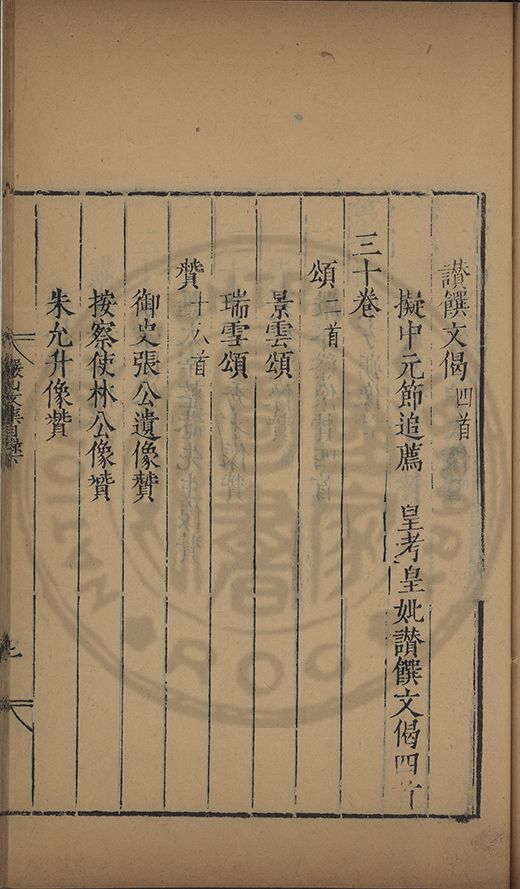 讃饌文偈四首
擬中元節追薦 皇考皇妣讃饌文偈四首
三十卷
頌二首
景雲頌
瑞雪頌
贊十八首
御史張公遺像贊
按察使林公像贊
朱允升像贊